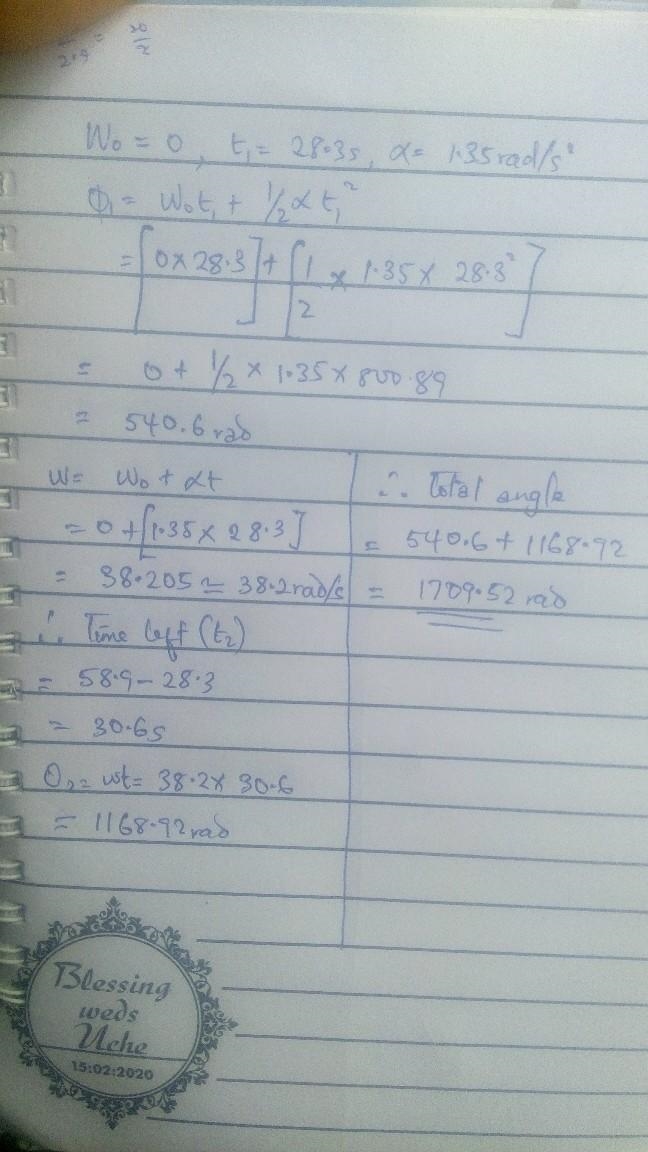 20
2.9 = 2
W₀ = 0, t₁ = 28.3s, α = 1.35rad/s²
Φ₁ = W₀t₁ + ½αt₁²
= [0 × 28.3] + [1/2 × 1.35 × 28.3²]
= 0 + ½ × 1.35 × 800.89
= 540.6 rad
W = W₀ + αt
= 0 + [1.35 × 28.3]
= 38.205 ≃ 38.2rad/s
∴ Time left (t₂)
= 58.9 - 28.3
= 30.6s
Θ₂ = wt = 38.2 × 30.6
= 1168.92 rad
∴ Total angle
= 540.6 + 1168.92
= 1709.52 rad
Blessing
weds
Uche
15:02:2020